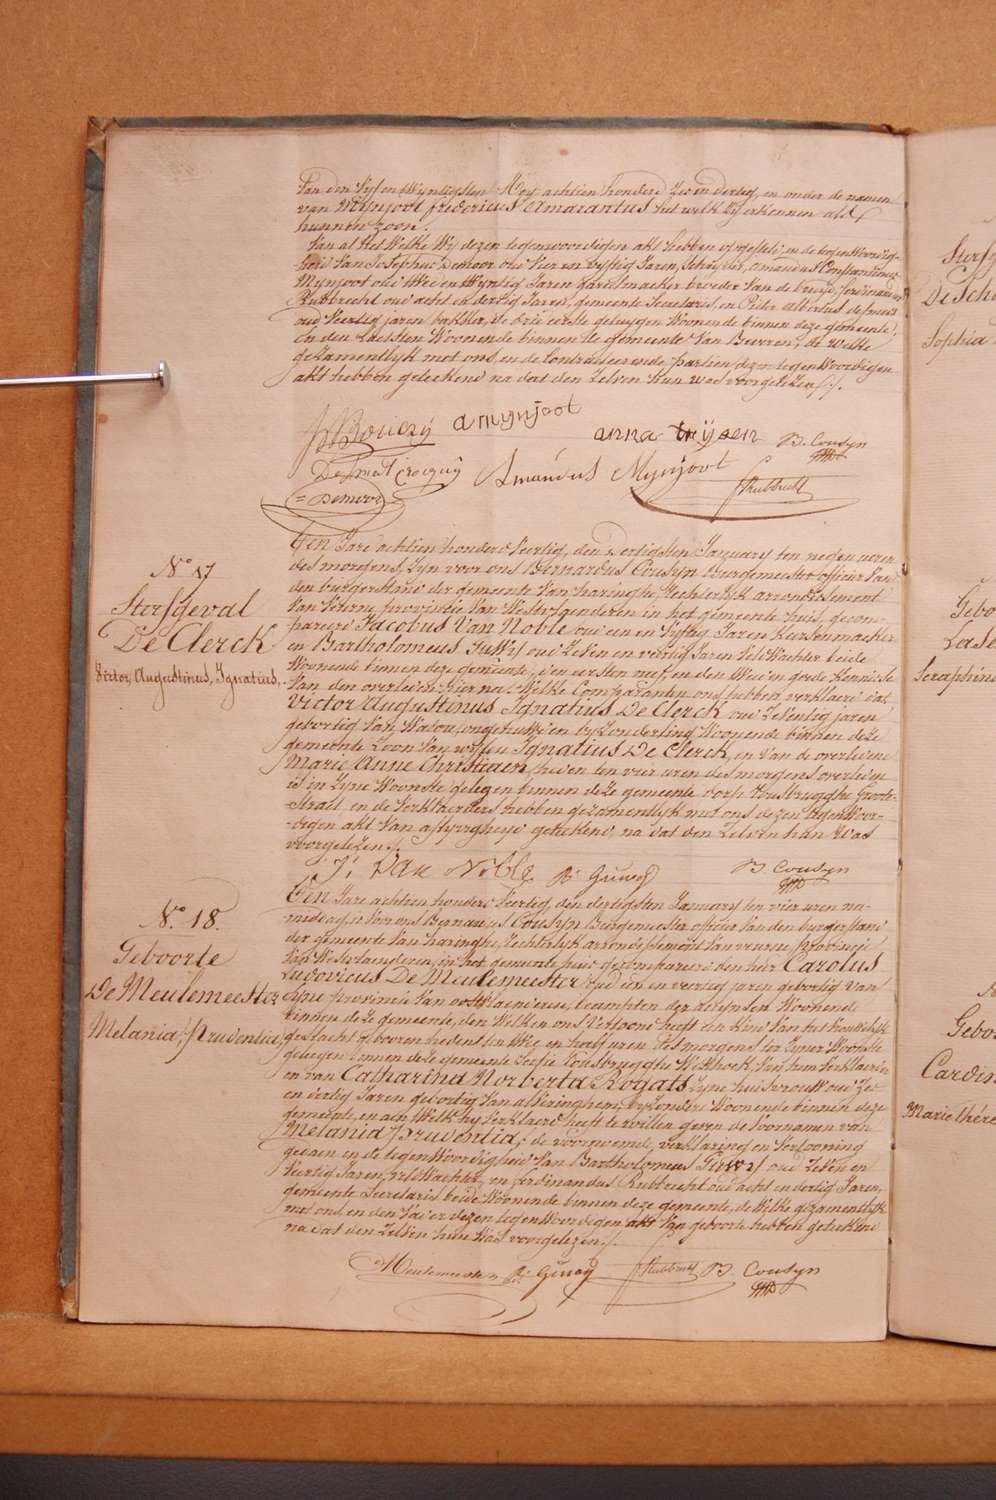 Van den Vyf en twyntigsten Mey achtien honderd Zes en dertig, en onder de namen
van Mijnjoot fredericus Amarantus het welk Zy erkennen als
hunnen Zoon.
Van al Het Welke Wy dezen tegenwoordigen akt hebben opgesteld, in de tegenwoordig-
heid Van Josephus Demoor oud Vier en vyftig Jaren, Schryver, amandus Constantinus
Mijnjoot oud Twee en twyntig Jaren Garelmaker broeder Van de bruid, ferdinandus
Rubbrecht oud acht en dertig Jaren, gemeente Secretaris, en Pieter albertus desmedt
oud Veertig jaren bakker, de drie eerste getuygen Woonende binnen deze gemeente,
en den Laetsten Woonende binnen de gemeente Van Beveren, de welke
gezamentlyk met ons, en de Contracteerende partien dezen tegenWoordigen
akt hebben geteekend na dat den Zelven hun Was voorgelezen /.
Bouczÿ amynjoot
anna trijsen B. Cousyn
De Smedt Crocquÿ Amandus Mynjoot
= Demoor Rubbrecht
N° 17
Sterfgeval
De Clerck
Victor, Augustinus, Ignatius,
Ten Jare achtien honderd Veertig, den dertigsten January ten negen uren
des morgens, Zyn voor ons Bernardus Cousyn Burgemeester officier Van
den burgerstand der gemeente Van haringhe, Rechterlyk arrondissement
Van Veurne, provintie Van Westvlaenderen in het gemeente huis, gecom-
pareerd Jacobus Van Noble oud een en Vyftig Jaren Keirsenmaeker
en Bartholomeus Guwy oud Zeven en veertig Jaren VeldWachter beide
Woonende binnen deze gemeente, den eersten neef, en den tweeden goede Kennisse
Van den overleden hier na, Welke Comparanten ons hebben verklaerd dat
Victor Augustinus Ignatius De Clerck oud Zeventig jaren
geboortig Van Watou, ongehuwd en byzonderling Woonende binnen deze
gemeente Zoon Van wylen Ignatius De Clerck, en van de overledene
Marie Anne Christiaen, heden ten vier uren des morgens overleden
is in Zyne Woonste gelegen binnen deze gemeente dorp Rousbrugghe Groote-
Straet, en de Verklaerders hebben gezamentlyk met ons dezen tegenWoor-
digen akt Van aflyvigheyd geteekend, na dat den Zelven hun Was
voorgelezen /.
J. Van Noble B. Guwy B. Cousyn
N° 18.
Geboorte
De Meulemeester
Melania, Prudentia,
Ten Jare achtien honderd Veertig, den dertigsten January ten vier uren na-
middag, is voor ons Bernardus Cousyn Burgemeester officier Van den burgerstand
der gemeente Van haringhe, Rechterlyk arrondissement Van veurne, Provincie
Van Westvlaenderen, in het gemeente huis gecompareerd den heer Carolus
Ludovicus De Meulemeester oud een en veertig jaren geboortig van
provincie Van oostvlaenderen, beambten der accynsen Woonende
binnen deze gemeente, den Welken ons Vertoond heeft een Kind Van het Vrouwelyk
geslacht geboren heden ten drie en half uren des morgens ter Zyner Woonste
gelegen binnen deze gemeente Sectie Rousbrugghe Witthoek, Van hem Verklaerder
en van Catharina Norberta Rogals Zyne huisvrouW oud Zes
en dertig Jaren geboortig Van alveringhem, byZondere Woonende binnen deze
gemeente, en aen Welk hy Verklaerd heeft te willen geven de Voornamen van
Melania Prudentia; de voornoemde verklaring en Vertooning
gedaen in de tegenWoordigheid Van Bartholomeus Guwy oud Zeven en
Veertig Jaren, veldWachter, en ferdinandus Rubbrecht oud acht en dertig Jaren,
gemeente Secretaris beide Woonende binnen deze gemeente, de Welke gezamentlyk
met ons, en den Vader dezen tegenWoordigen akt Van geboorte hebben geteekend
na dat den Zelven hun Was voorgelezen /.
Meulemeester B. Guwy Rubbrecht B. Cousyn
Sterfg
De Sch
Sophia
Gebo
Lase
Seraphine
N
Gebo
Cardin
Marie thére